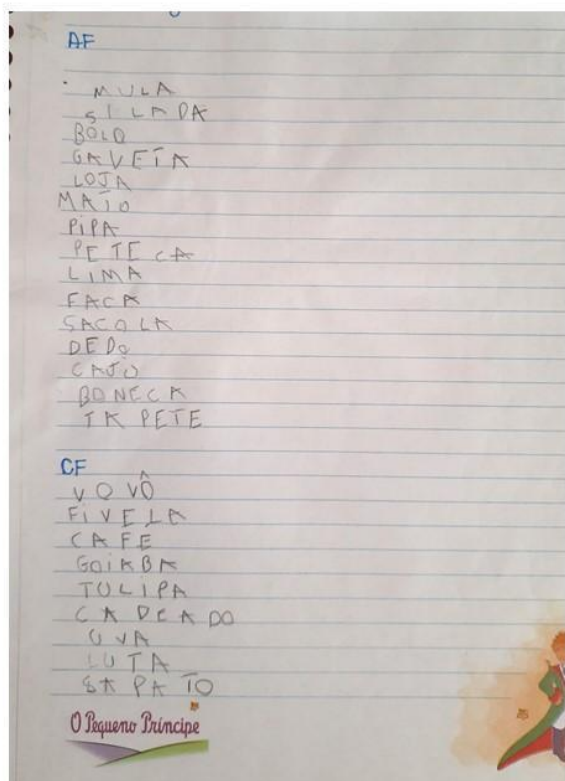 AF
MULA
SILADA
BOLO
GAVETA
LOJA
MATO
PIPA
PETECA
LIMA
FACA
SACOLA
DEDO
CAJO
BONECA
TAPETE
CF
VOVÔ
FIVELA
CAFE
GOIABA
TULIPA
CADEADO
UVA
LUTA
SAPATO
O Pequeno Príncipe